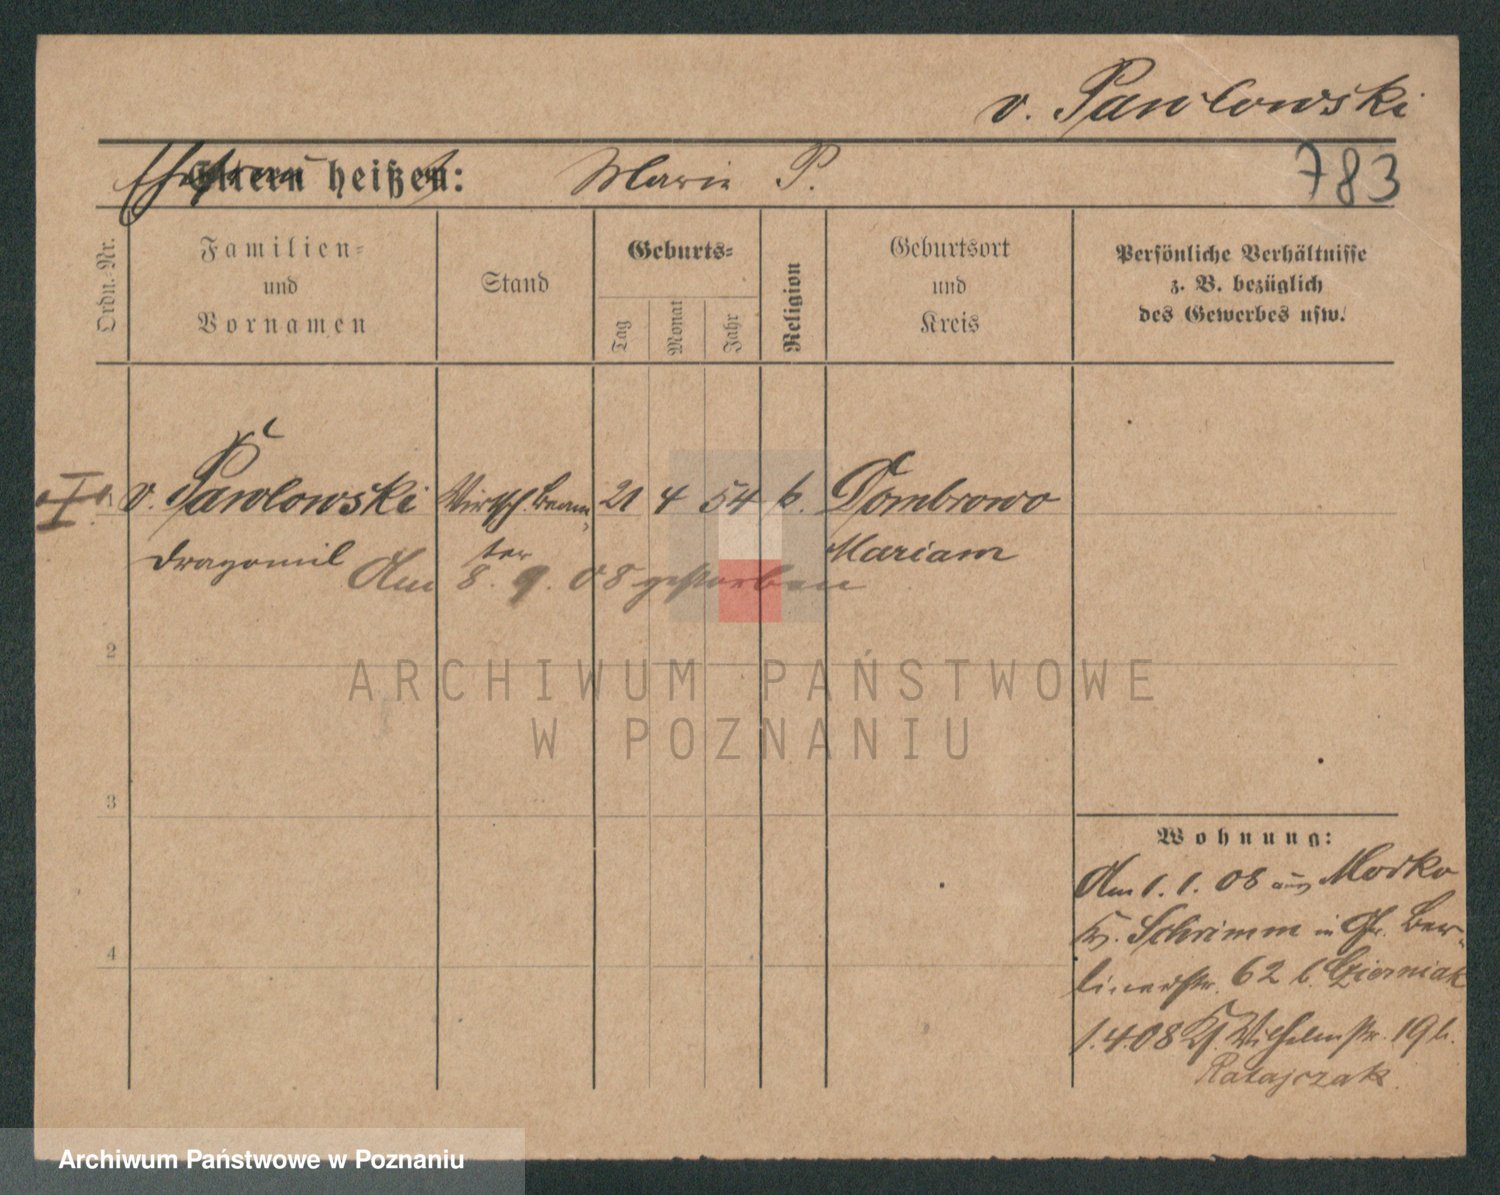 v. Pawlowski
Eltern heißen: Marie P.
783
Ordn.-Nr.
Familien-
und
Vornamen
Stand
Geburts-
Tag
Monat
Jahr
Religion
Geburtsort
und
Kreis
Persönliche Verhältnisse
z. B. bezüglich
des Gewerbes usw.
v. Pawlowski Wirtsch. Beam- 21 4 54 k. Dombrowo
Dragomil ter Mariam
Am 8. 9. 08 gestorben
2
ARCHIWUM PAŃSTWOWE
W POZNANIU
3
4
Wohnung:
Am 1. 1. 08 aus Morka
Kr. Schrimm in Gr. Ber-
linerstr. 62 b. Czierniak
1.4.08 Kl. Wilhelmstr. 19 b.
Ratajczak.
Archiwum Państwowe w Poznaniu